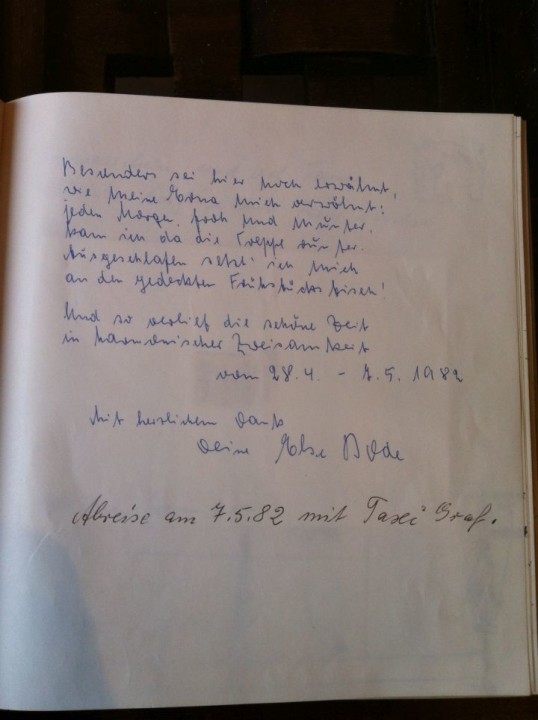 Besonders sei hier noch erwähnt,
wie meine Erna mich verwöhnt:
jeden Morge, froh und munter,
kam ich da die Treppe runter.
Ausgeschlafen setzt' ich mich
an den gedeckten Frühstückstisch!
Und so verlief die schöne Zeit
in harmonischer Zweisamkeit
vom 28.4. - 7.5. 1982
Mit herzlichem Dank
Deine Else Bode
Abreise am 7.5.82 mit Taxi Graf.